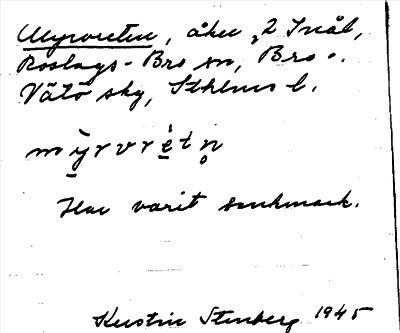 Myrvreten, åker, 2 Inål,
Roslags-Bro sn, Bro o.
Vätö skg, Sthlms l.
m ỳ̠ r v r é̠ t n̥
Har varit sankmark.
Kerstin Stenberg 1945